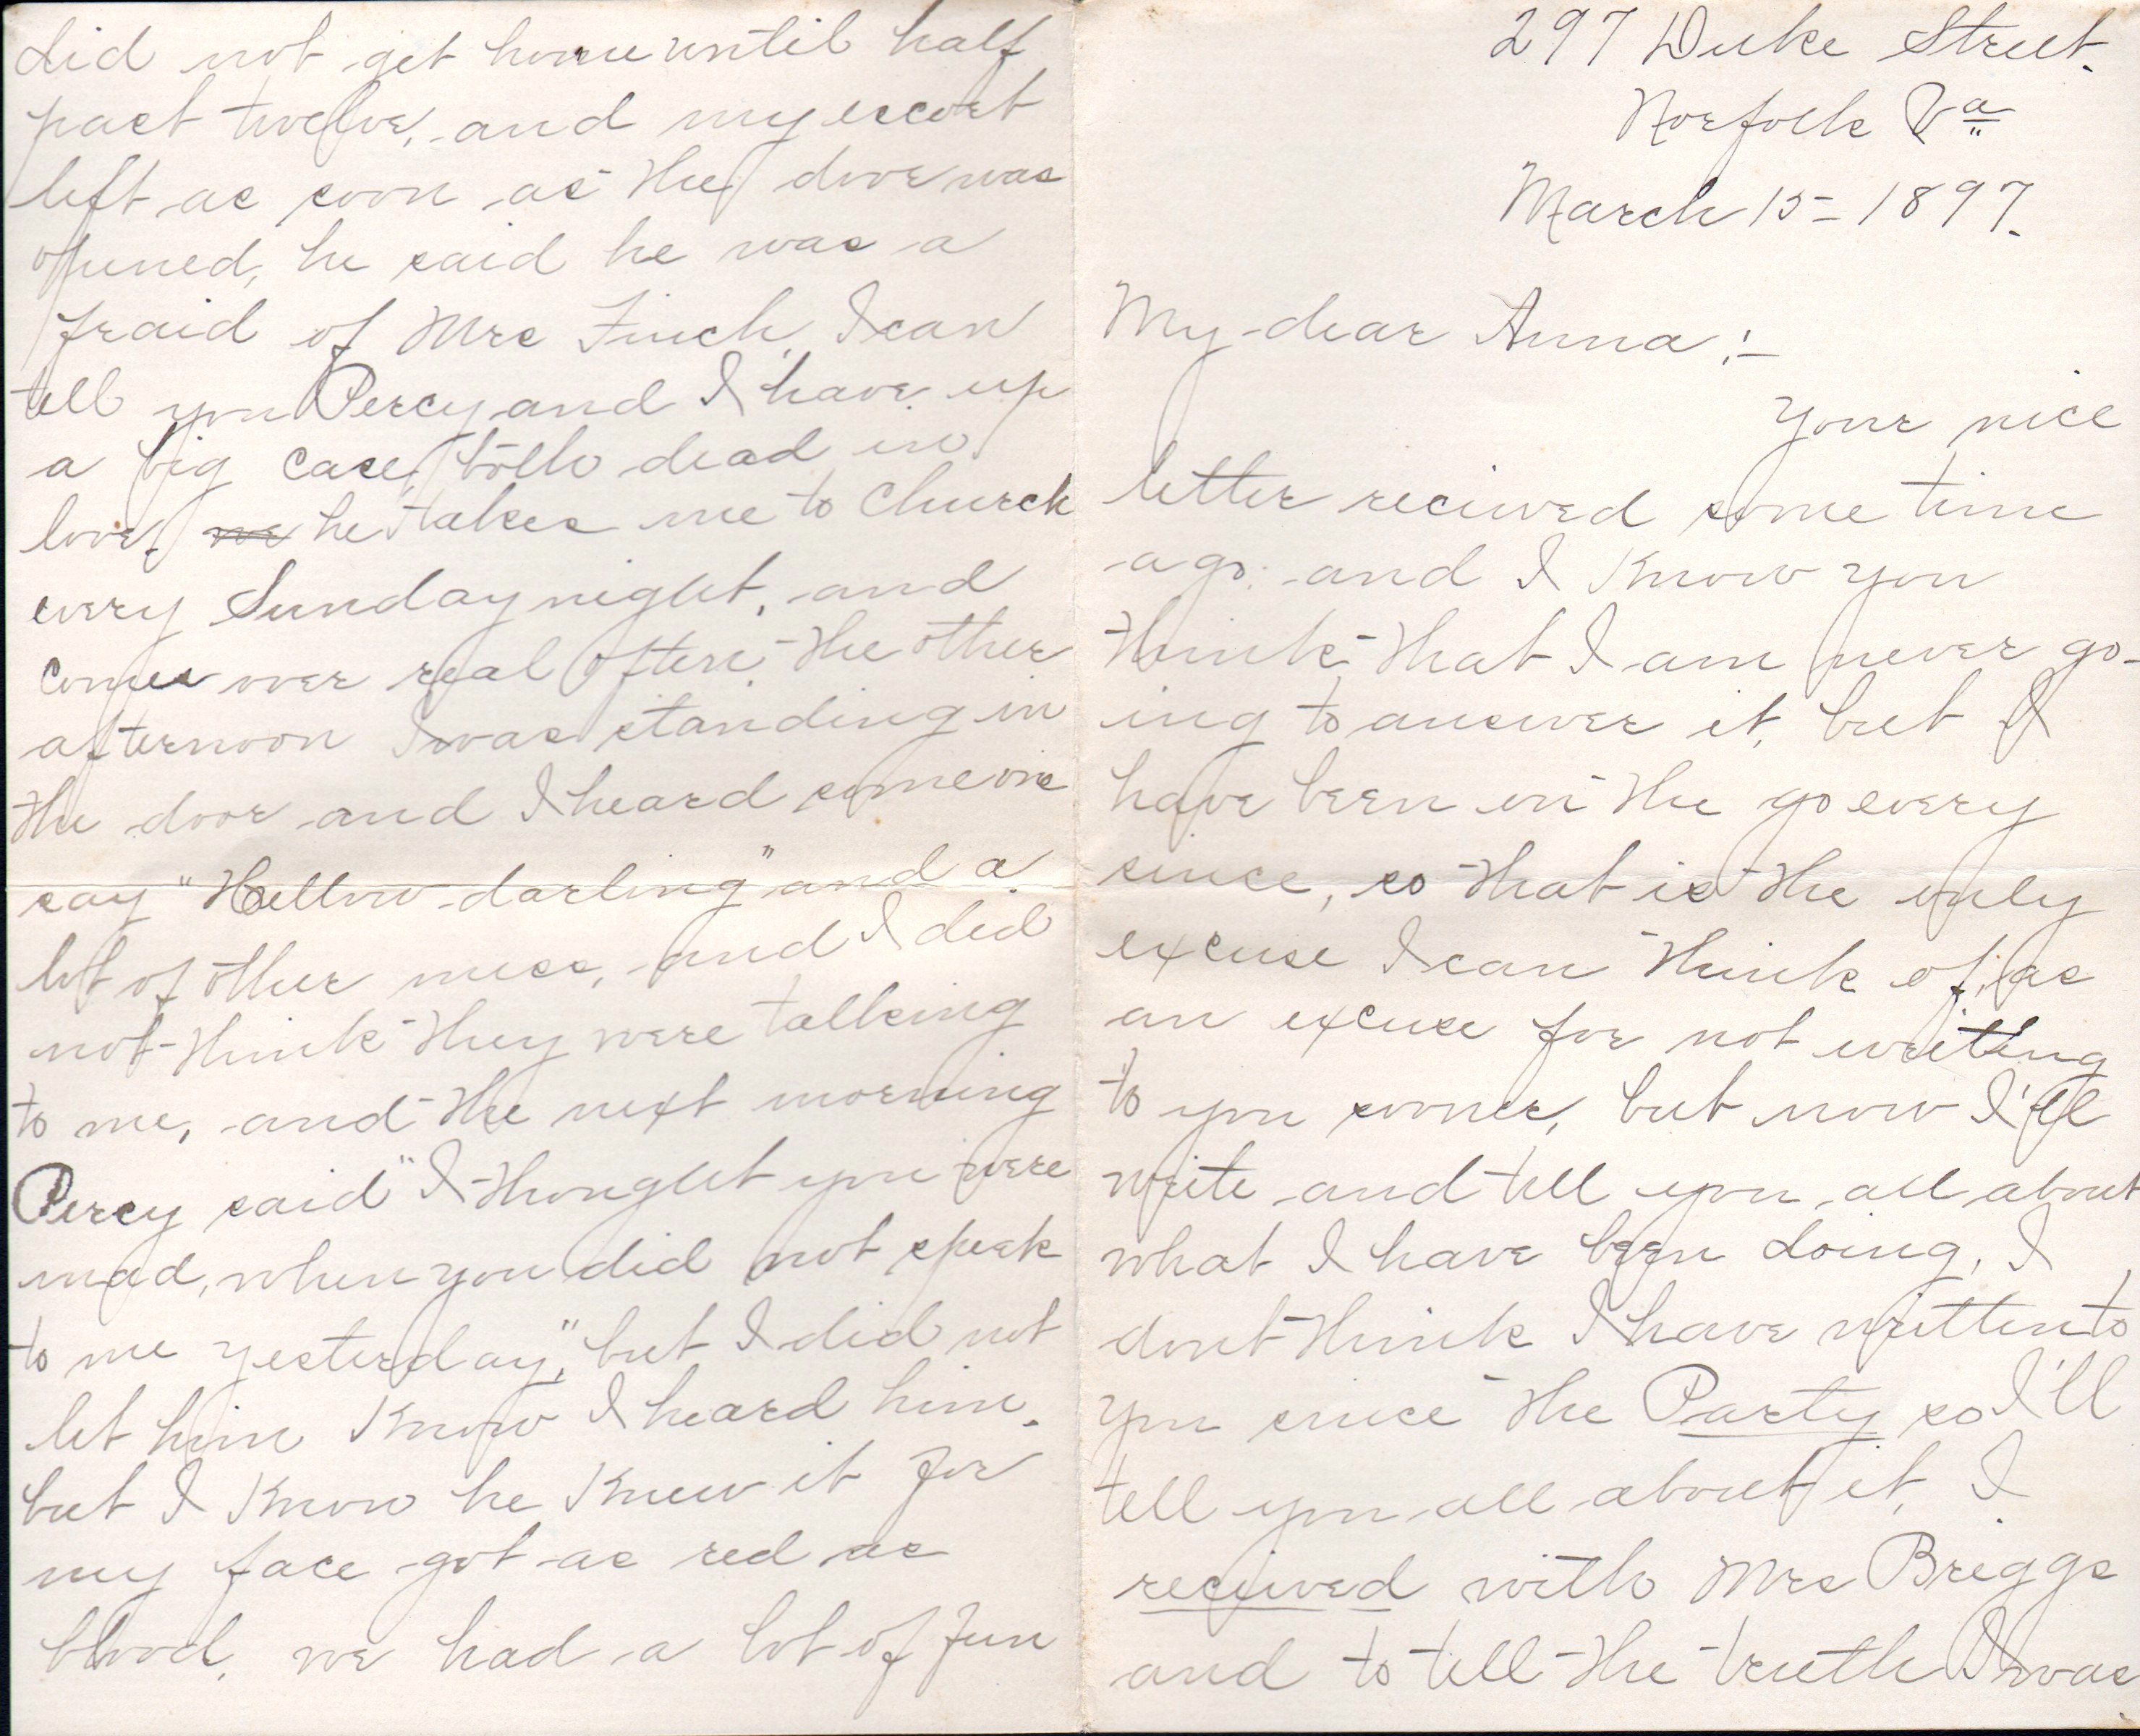 297 Duke Street.
Norfolk Va
March 15-1897.
My dear Anna:-
Your nice
letter recieved some time
ago. and I know you
think that I am never go-
ing to answer it, but I
have been on the go every
since, so that is the only
excuse I can think of, as
an excuse for not writing
to you sooner, but now I'll
write and tell you all about
what I have been doing. I
dont think I have written to
you since the Party so I'll
tell you all about it, I
recieved with Mrs Briggs
and to tell the truth I was
did not get home until half
past twelve, and my escort
left as soon as the door was
opened, he said he was a
fraid of Mrs Finch, I can
tell you Percy and I have up
a big case, both dead in
love. we he takes me to church
every Sunday night, and
comes over real often, the other
afternoon I was standing in
the door and I heard some one
say "Hellow darling" and a
lot of other mess, and I did
not think they were talking
to me, and the next morning
Percy said "I thought you were
mad, when you did not speak
to me yesterday," but I did not
let him know I heard him.
but I know he knew it for
my face got as red as
blood, we had a lot of fun